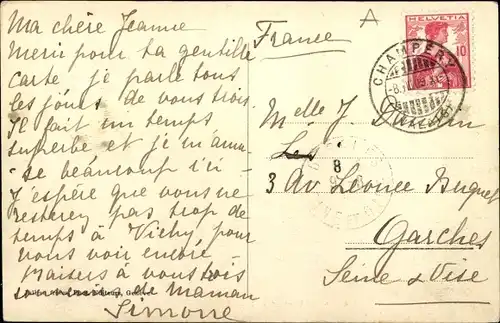 Ma chère Jeanne
Merci pour ta gentille
carte je parle tous
les jours de vous trois.
Il fait un temps
superbe et je m'amu-
-se beaucoup ici -
J'espère que vous ne
resterez pas trop de
temps à Vichy pour
vous voir encore
Baisers à vous trois
souvenirs de Maman
Simone
A
France
HELVETIA
10
CHAMPÉRY
(WALLIS)
Melle J.
8
3 Av Léonce Buquet
Garches
Seine & Oise